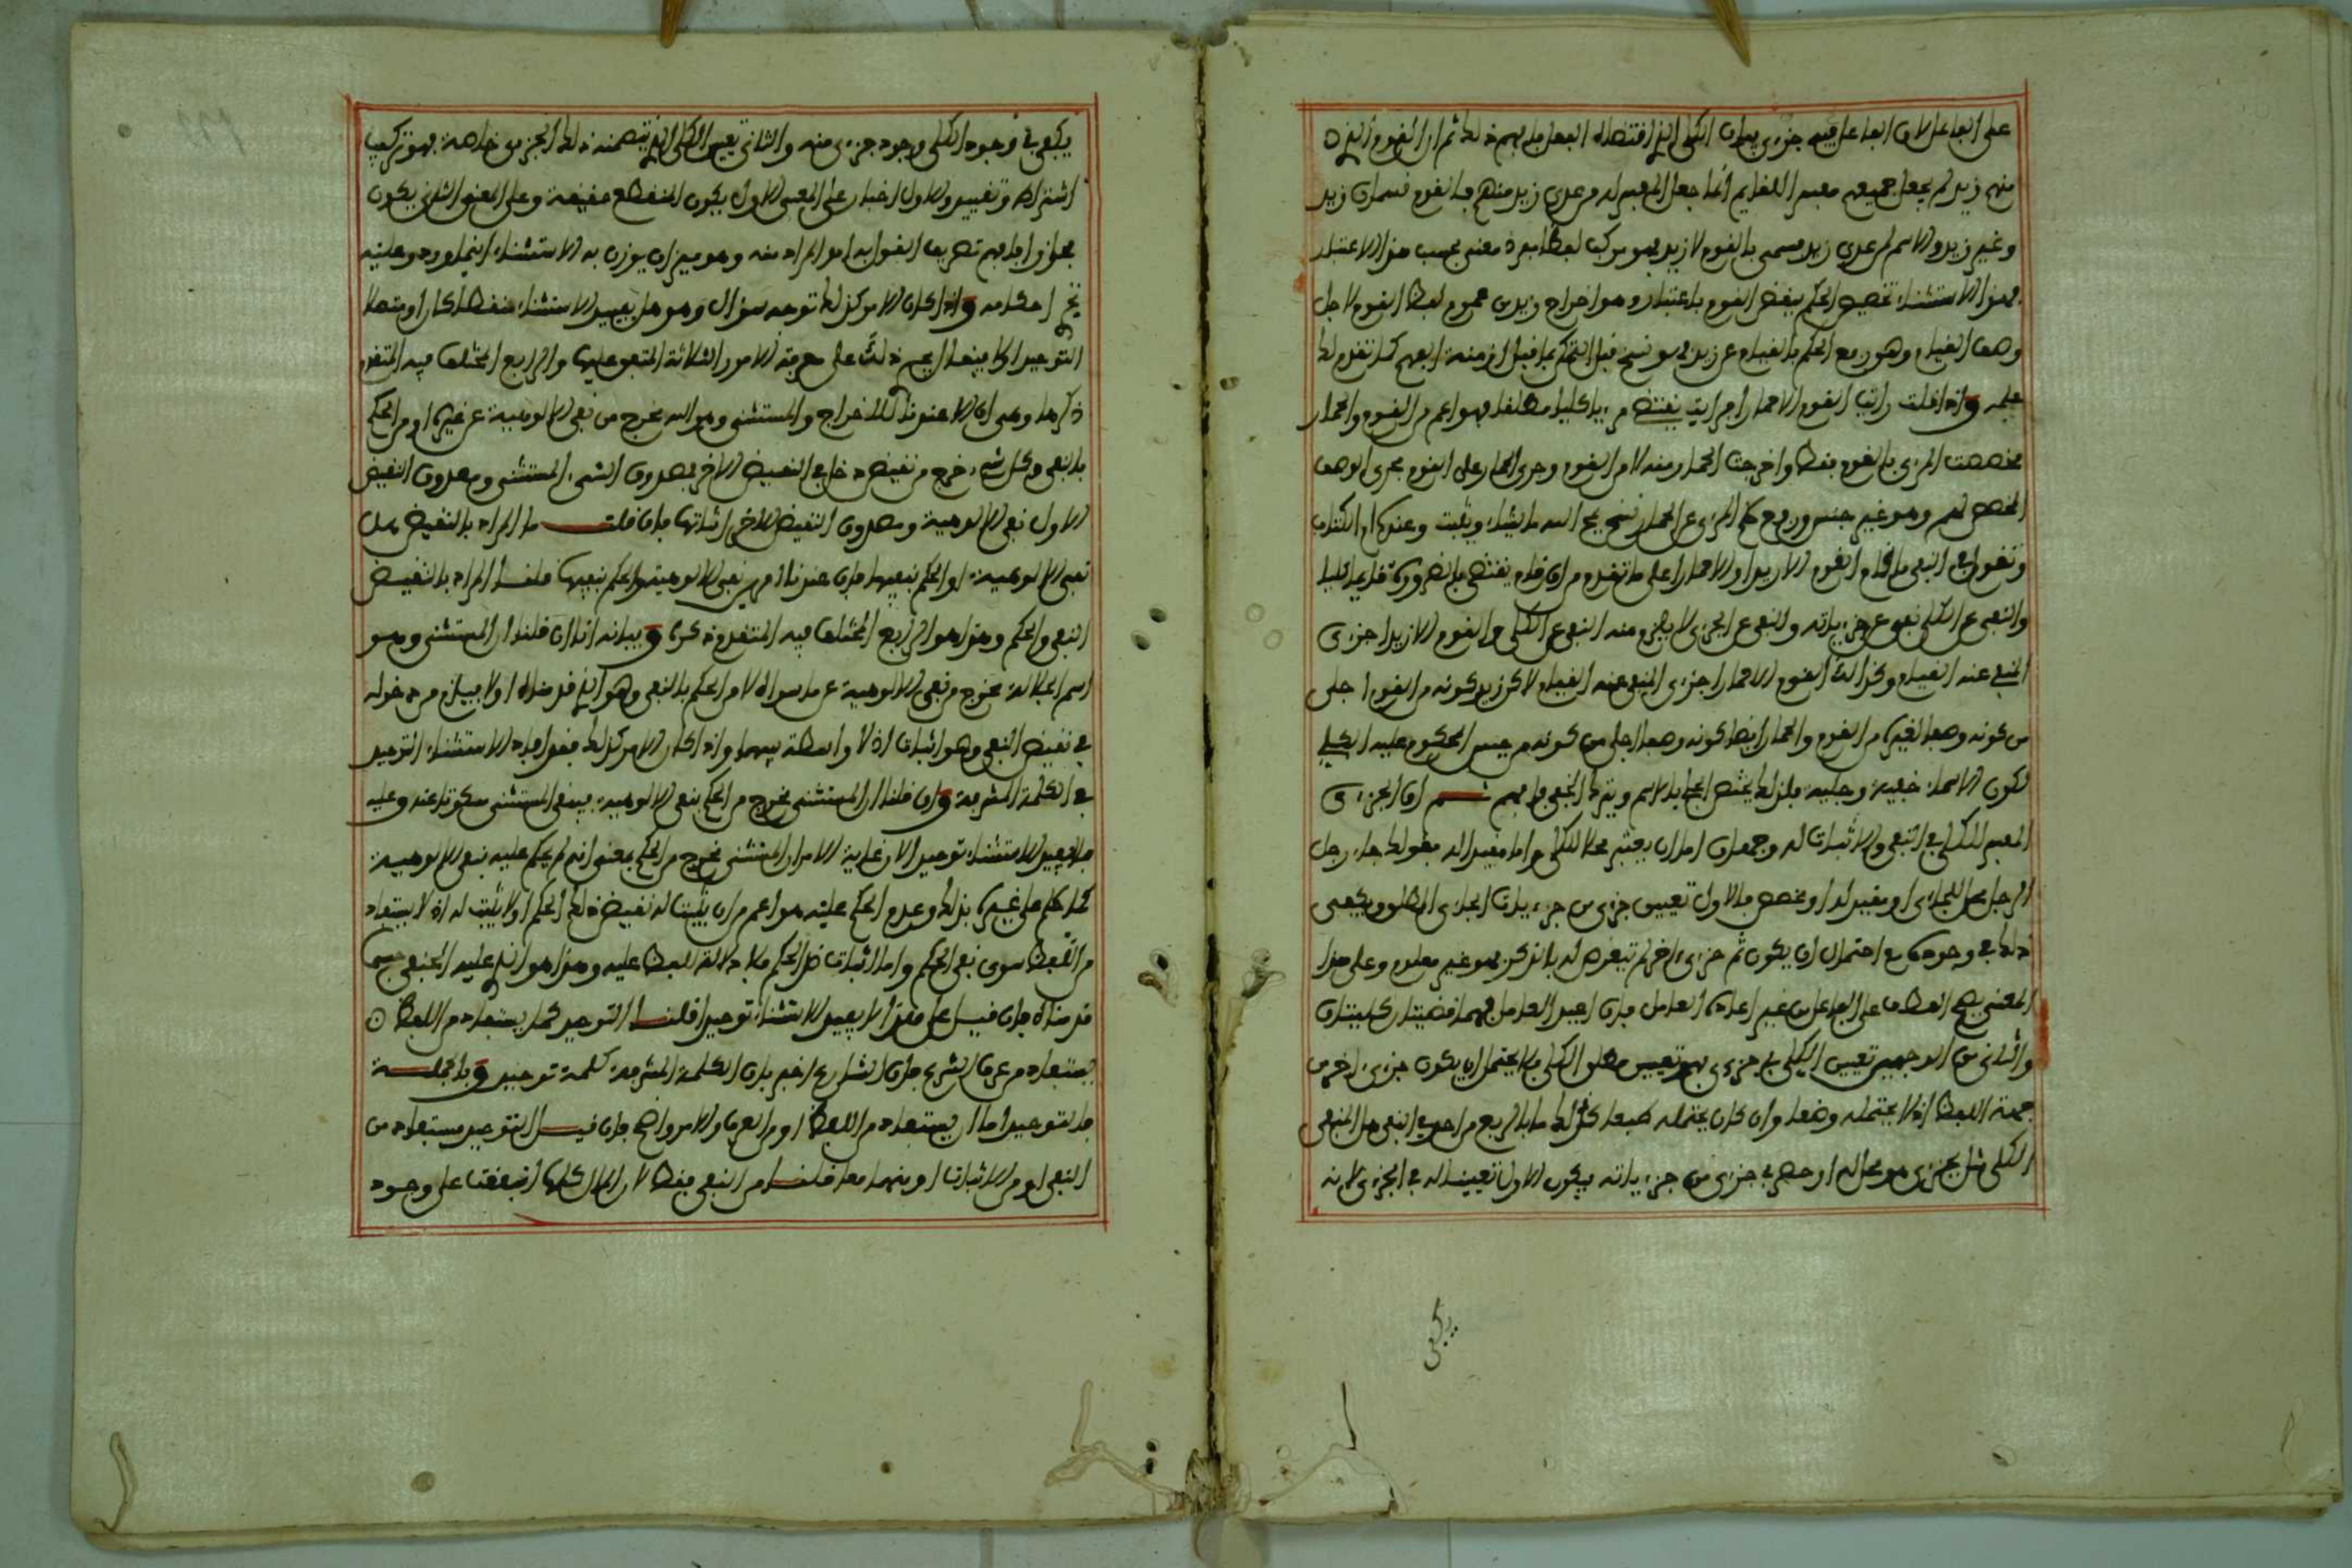 على الفاعل لان الفاعل فيه جزءي بعدان الكلى الذ اقتضاه الفعل فافهم ذلك ثم ان القوم الذ
منهم زيد لم يجعل جميعهم مفسر اللقايم انما جعل المفسر له من عدى زيد منهم فالقوم قسمان زيد
وغير زيد والاسم لمن عدى زيد مسمى بالقوم لا زيد فهو مركب لفظا مفرد معنى بحسب هذا الاعتبار
فهذا الاستثناء تخصيص الحكم ببعض القوم باعتبار وهو اخراج زيد من عموم لفظ القوم لاجل
وصف القيام وهو رفع الحكم بالقيام عن زيد فهو نسخ قبل التمكن بما قبل ازمنة افهم كما تقدم لك
علمه واذا قلت رايت القوم الا حمارا فرايت يقتضي مرءيا كليا مطلقا فهو اعم من القوم والحمار
فخصصت المرءى بالقوم فقط واخرجت الحمار منه لا من القوم وجرى الحمار على القوم مجرى الوصف
المخصص لهم وهو غير جنس ورفع حكم المرءى عن الحمار نسخ يمح الله ما يشاء ويثبت وعنده ام الكتاب
وتقول في النفى ما قام القوم الا زيدا والا حمارا على ما تقدم من ان قام يقتضى بالضرورة قايما كليا
والنفى عن الكلى نفى عن جزءياته والنفى عن الجزءى لا يلزم منه النفى عن الكلى والقوم الا زيدا جزءى
المنفى عنه القيام وكذالك القوم الا حمارا جزءى المنفى عنه القيام لاكن زيد كونه من القوم اجلى
من كونه وصفا لغيره من القوم والحمار ايضا كونه وصفا اجلى من كونه من جنس المحكوم عليه الكلي
لكون الاسماء خفية وجلية فلذلك يختص الجلى بالاسم ويترك الخفى فافهم ثم ان الجزءى
المفسر للكلى فى النفى والاثبات له وجهان اما ان يعتبر محلا للكلى واما مقيدا له فقولك جاء رجل
الرجل محل للجاءى او مقيد له او مخصص فالاول تعيين جزءى من جزءيات الجاءى المطلق ويكفى
ذلك فى وجوده مع احتمال ان يكون ثم جزءى اخر لم تتعرض له بالذكر فهو غير معلوم وعلى هذا
المعنى يصح العطف على الفاعل من غير اعادة العامل فان اعيد العامل فهما قضيتان كليتان
والثانى من الوجهين تعيين الكلى فى جزءى فهو تعيين مطلق الكلى فلا يحتمل ان يكون جزءى اخر من
جهة اللفظ اذ لا يحتمله وضعا وان كان يحتمله طبعا كل ذلك ما بالربع من احد فى النفى هل المنفى
الكلى مثل بجزءى هو محل له او حصر فى جزءى من جزءياته فيكون الاول تعيينا له فى الجزءى لانه
يكفى
يكفى فى وجود الكلى وجود جزءى منه والثانى تعيين الكلى الذى يتضمنه ذلك الجزءى خاصة فهو تركيب
اشتراك وتقييد والاول اخبار على المعنى الاول يكون المنقطع حقيقة وعلى المعنى الثانى يكون
مجازا فافهم تصريف القول به امو المراد منه وهو ميزان يوزن به الاستثناء اينما ورد وعليه
تجرى احكامه واذا كان الامر كذلك توجه سؤال وهو هل يفيد الاستثناء منقطعا كان او متصلا
التوحيد او لا فينبغى ذلك على معرفة الامور الثلاثة المتفق عليها والرابع المختلف فيه المتقدم
ذكرها وهى ان الا عندنا للاخراج والمستثنى وهو الله مخرج من نفى الالوهية عن غيره او من الحكم
بالنفى وكل شىء خرج من نقيض دخل فى النقيض الاخر فصدوق الشىء المستثنى وصدوق النقيض
الاول نفى الالوهية وصدوق النقيض الاخر اثباتها فان قلت ما المراد بالنقيض هل
نفى الالوهية او الحكم بنفيها فان عندنا امرين نفى الالوهية والحكم بنفيها قلنا المراد بالنقيض
النفى والحكم وهذا هو الرابع المختلف فيه المتقدم ذكره وبيانه انا ان قلنا ان المستثنى وهو
اسم الجلالة مخرج من نفى الالوهية عن ما سواه لا من الحكم بالنفى وهو الذى قدمناه اولا فيلزم من دخوله
فى نقيض النفى وهو اثبات اذ لا واسطة بينهما واذا كان الامر كذلك فقد افاد الاستثناء التوحيد
فى الكلمة المشرفة وان قلنا ان المستثنى مخرج من الحكم بنفى الالوهية فيبقى المستثنى مسكوتا عنه وعليه
فلا يفيد الاستثناء توحيدا لان غاية الامر ان المستثنى مخرج من الحكم بمعنى انه لم يحكم عليه بنفى الالوهية
كما حكم على غيره بذلك وعدم الحكم عليه هو اعم من ان يثبت له نقيض ذلك الحكم او لا يثبت له اذ لا يستفاد
من اللفظ سوى نفى الحكم واما اثبات ضد الحكم فلا دلالة للفظ عليه وهذا هو الذى عليه الحنفى حسبما
قدمناه فان قيل على هذا لا يفيد الاستثناء توحيدا قلنا التوحيد كما يستفاد من اللفظ
يستفاد من عرف الشرع فان الشارع اخبر بان الكلمة المشرفة كلمة توحيد وبالجملة
فالتوحيد اما ان يستفاد من اللفظ او من العرف والامر واضح فان قيل التوحيد مستفاد من
النفى او من الاثبات او منهما معا قلنا من النفى فقط لان الملل كلها اتفقت على وجود